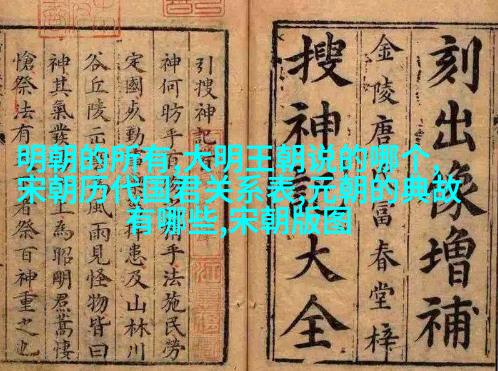 明朝的所有,大明王朝说的哪个,
宋朝历代国君关系表,元朝的典故
有哪些,宋朝版图
刻出像增補
金陵唐 富春堂梓
搜神記大全
引搜神記
神何昉乎 乎法施民勞
定國 患及山林川
谷丘陵 風雨見怪物皆曰
神其氣發 為昭明焄蒿悽
愴祭法有 者祭百神重之也